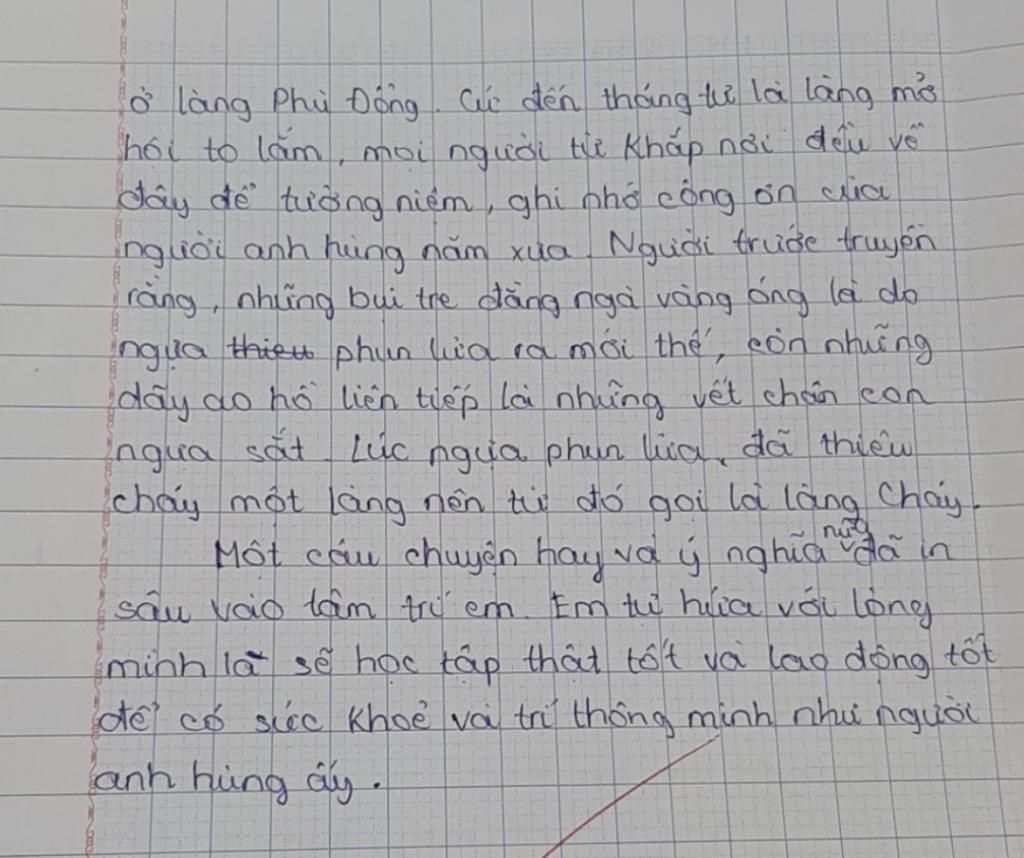 ở làng Phù Đổng. Cứ đến tháng tư là làng mở
hội to lắm, mọi người từ khắp nơi đều về
đây để tưởng niệm, ghi nhớ công ơn của
người anh hùng năm xưa. Người trước truyền
rằng, những bụi tre đằng ngà vàng óng là do
ngựa thiêu phun lửa ra mới thế, còn những
dãy ao hồ liên tiếp là những vết chân con
ngựa sắt. Lúc ngựa phun lửa, đã thiêu
cháy một làng nên từ đó gọi là làng Cháy.
Một câu chuyện hay và ý nghĩa nữa đã in
sâu vào tâm trí em. Em tự hứa với lòng
mình là sẽ học tập thật tốt và lao động tốt
để có sức khoẻ và trí thông minh như người
anh hùng ấy.